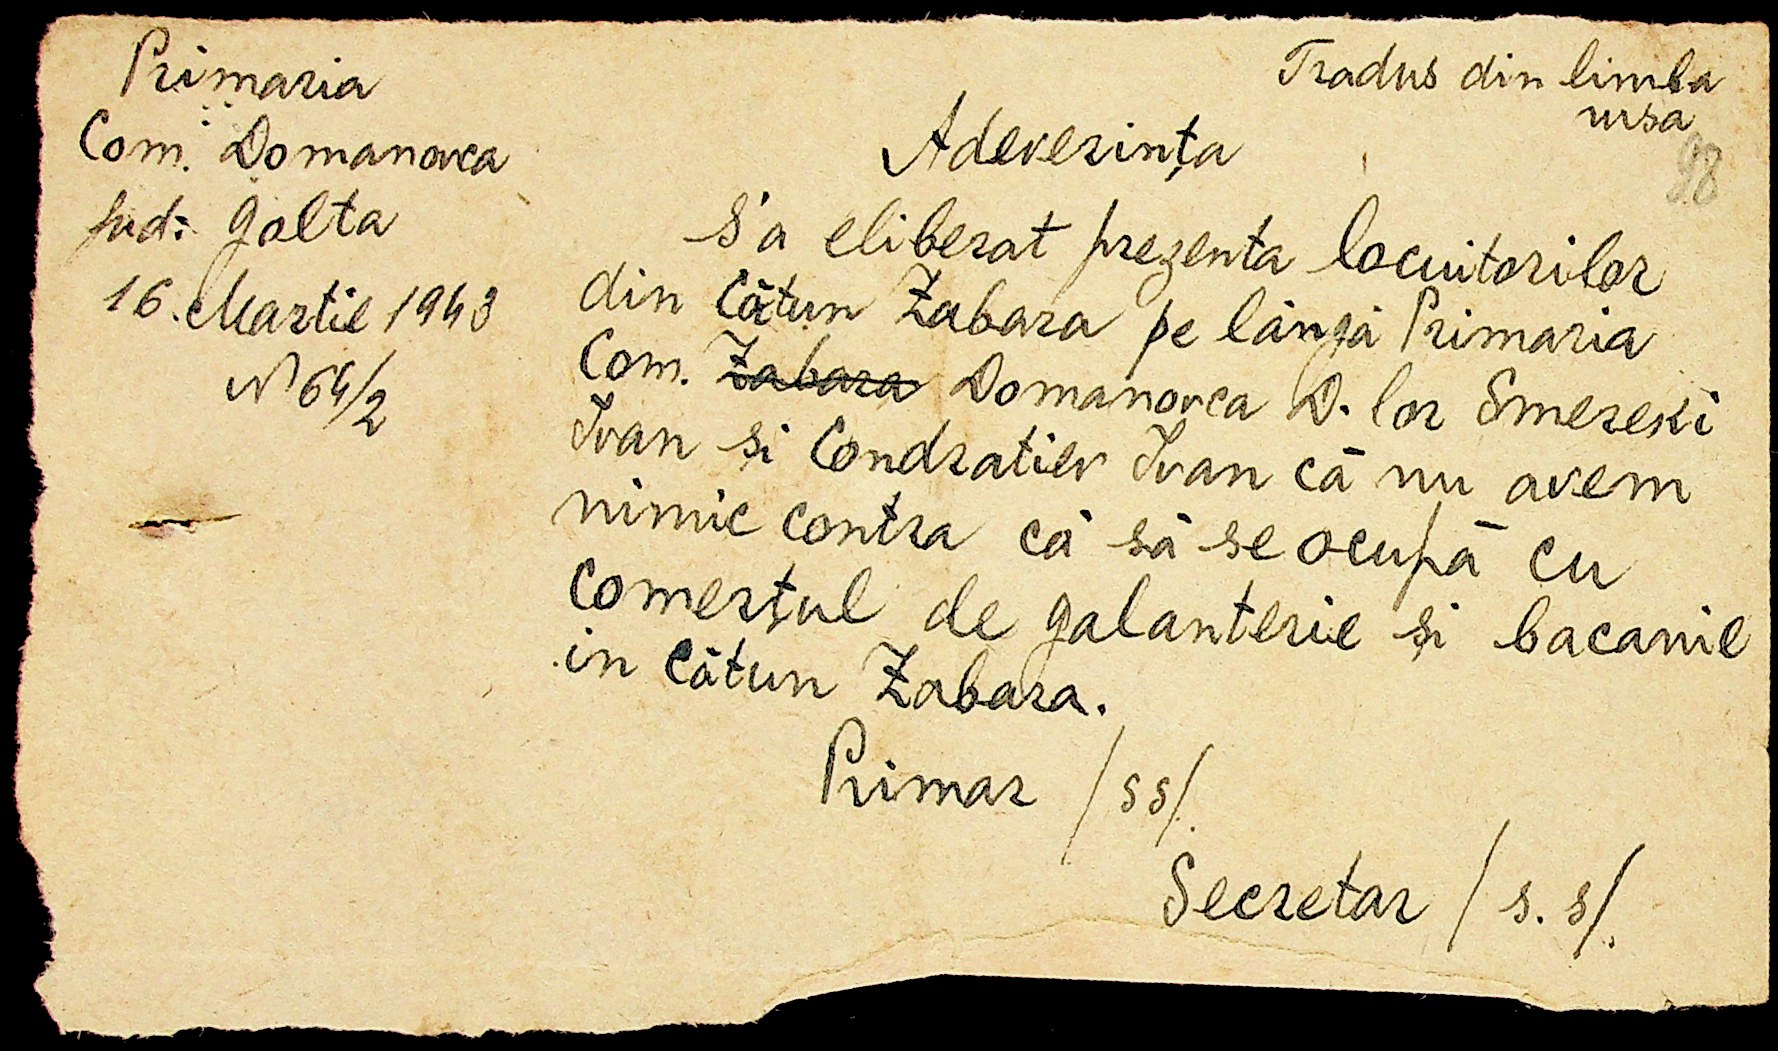 Primaria
Com. Domanovca
jud: Golta
16. Martie 1943
N 64/2
Tradus din limba
rusa
98
Adeverința
S'a eliberat prezenta locuitorilor
din Cătun Zabara pe lângă Primaria
Com. Zabara Domanovca D. lor Smereki
Ivan si Condratiev Ivan că nu avem
nimic contra că să se ocupă cu
comerțul de galanterie și bacanie
in Cătun Zabara.
Primar /ss/.
Secretar /s.s/.